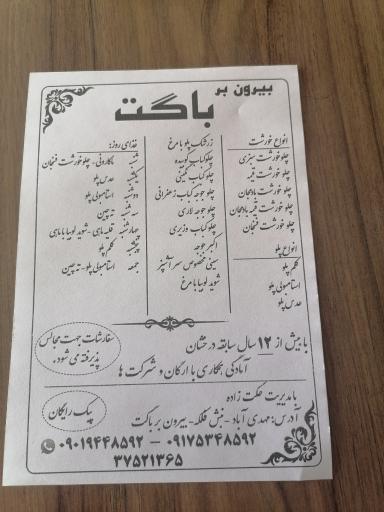 بیرون بر
باگت
انواع خورشت
چلو خورشت سبزی
چلو خورشت قیمه
چلو خورشت بادمجان
چلو خورشت قیمه بادمجان
چلو خورشت فنجان
انواع پلو
کلم پلو
استامبولی پلو
عدس پلو
زرشک پلو با مرغ
چلو کباب کوبیده
چلو کباب نگینی
چلو جوجه کباب زعفرانی
چلو جوجه لاری
چلو کباب وزیری
اکبر جوجه
سینی مخصوص سرآشپز
شوید لوبیا با مرغ
غذای روز:
شنبه ماکارونی - چلو خورشت فنجان
یکشنبه عدس پلو
دوشنبه استامبولی پلو
سه شنبه ته چین
چهارشنبه قلیه ماهی - شوید لوبیا با ماهی
پنجشنبه کلم پلو
جمعه استامبولی پلو - ته چین
با بیش از ۱۲ سال سابقه درخشان
آمادگی همکاری با ارگان و شرکت ها
سفارشات جهت مجالس
پذیرفته می شود.
با مدیریت حکمت زاده
آدرس: مهدی آباد - نبش فلکه - بیرون بر باگت
پیک رایگان
۰۹۱۷۵۳۴۸۵۹۲ - ۰۹۰۱۹۴۴۸۵۹۲
۳۷۵۲۱۳۶۵